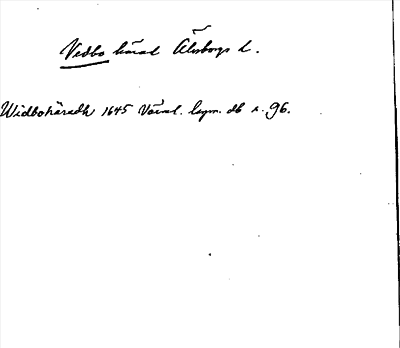 Vedbo härad Älvsborgs l.
Widbohäradh 1645 Värml. lagm. db s. 96.